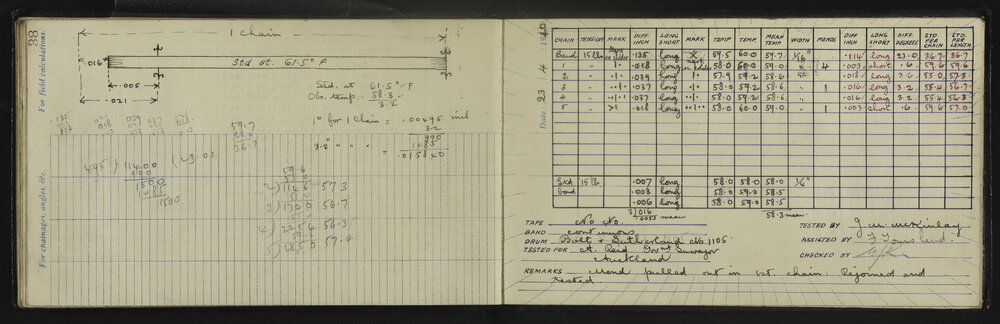 38
For field calculations.
For chainages, angles, &c.
1 chain
.016
Std at 61.5° F
.005
.021
Std. at 61.5° F
Obs. temp. 58.3
3.2
1° for 1 Chain = .00495 inch
3.2
990
1485
3.2 " " " = .015840
59.7
23.0
36.7
495) 11400 (23.03
990
1500
1485
1500
59.6
55.0
2) 114.6 57.3
55.4
3) 170.0 56.7
55.4
4) 225.4 56.3
59.6
5) 285.0 57.0
Date: 23 4 1940
CHAIN TENSION MARK DIFF. INCH LONG SHORT MARK TEMP. TEMP. MEAN TEMP. WIDTH MENDS DIFF INCH LONG SHORT DIFF. DEGREES STD. PER CHAIN STD. PER LENGTH
Band 15 lb .135 long 59.5 60.0 59.7 1/16" .114 long 23.0 36.7 36.7
1 " .018 long 58.0 60.0 59.0 " 4 .003 short .6 59.6 59.6
2 " .039 long 57.9 59.2 58.6 " .018 long 3.6 55.0 57.3
3 " .037 long 58.0 59.2 58.6 " 1 .016 long 3.2 55.4 56.7
4 " .037 long 58.0 59.2 58.6 " .016 long 3.2 55.4 56.3
5 " .018 long 58.0 60.0 59.0 " 1 .003 short .6 59.6 57.0
Std 15 lb .007 long 58.0 58.0 58.0 1/6"
band .003 long 58.0 59.0 58.5
.006 long 58.0 59.0 58.5
3).016
.0053 mean
58.3 mean
TAPE No No
BAND continuous
DRUM Bolt & Sutherland No 1105
TESTED FOR A. Reid Govmt Surveyor
Auckland
TESTED BY J. W. McKinlay
ASSISTED BY F Townsend.
CHECKED BY
REMARKS Mend pulled out in 1st. chain. Rejoined and
tested